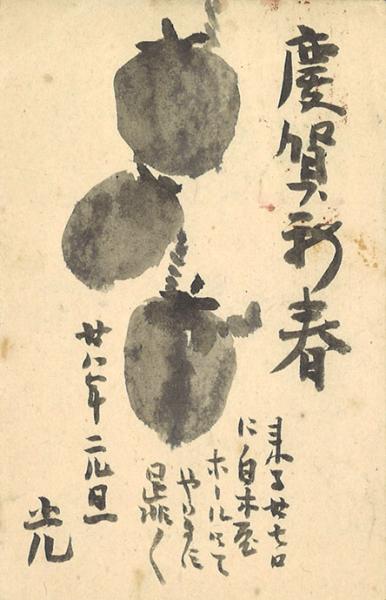 慶賀新春
来る廿七日
に白木屋
ホールにて
やりますに
是非〱
廿八年 元旦
光